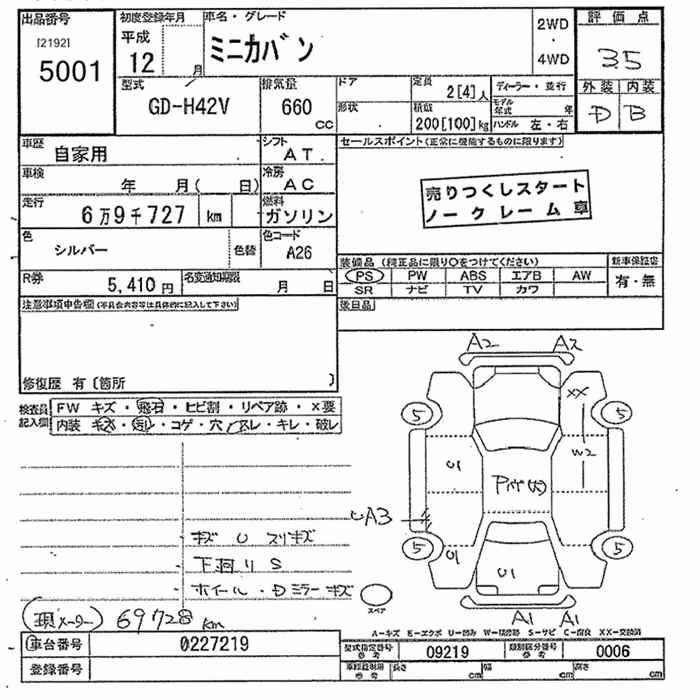 出品番号
[2192]
5001
初度登録年月
平成
12 月
車名・グレード
ミニカバン
2WD
・
4WD
評価点
35
外装 内装
D B
型式
GD-H42V
排気量
660
CC
ドア
形状
定員
2[4]人
積載
200[100]kg
ディーラー・並行
モデル年式 年
ハンドル 左・右
車歴
自家用
シフト
AT
セールスポイント(正常に機能するものに限ります)
車検
年 月( 日)
冷房
AC
売りつくしスタート
ノークレーム車
走行
6万9千727 km
燃料
ガソリン
色
シルバー
色替
色コード
A26
装備品(純正品に限り○をつけてください)
新車保証書
PS PW ABS エアB AW
有・無
SR ナビ TV カワ
R券
5,410円
名変通知期限
月 日
後日品
注意事項申告欄(不具合内容等は具体的に記入して下さい)
修復歴 有〔箇所 〕
検査員
記入欄
FW キズ・飛石・ヒビ割・リペア跡・X要
内装 キズ・汚レ・コゲ・穴・スレ・キレ・破レ
A2 A2
XX
5 5
U1
W2
UA3
5 5
U1
U1
A1 A1
キズ U スリキズ
下回りS
ホイール・Dミラーキズ
スペア
(現メーター) 69728km
A-キズ E-エクボ U-凹み W-補修跡 S-サビ C-腐食 XX-交換済
車台番号
0227219
型式指定番号
参考
09219
類別区分番号
参考
0006
登録番号
車検証制限
参考
長さ cm 幅 cm 高さ cm